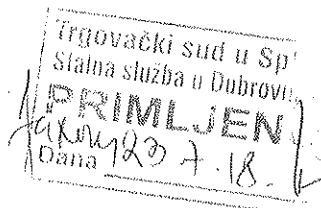 Trgovački sud u Sp
Stalna služba u Dubrovi
PRIMLJEN
Dana 23 7. 18.